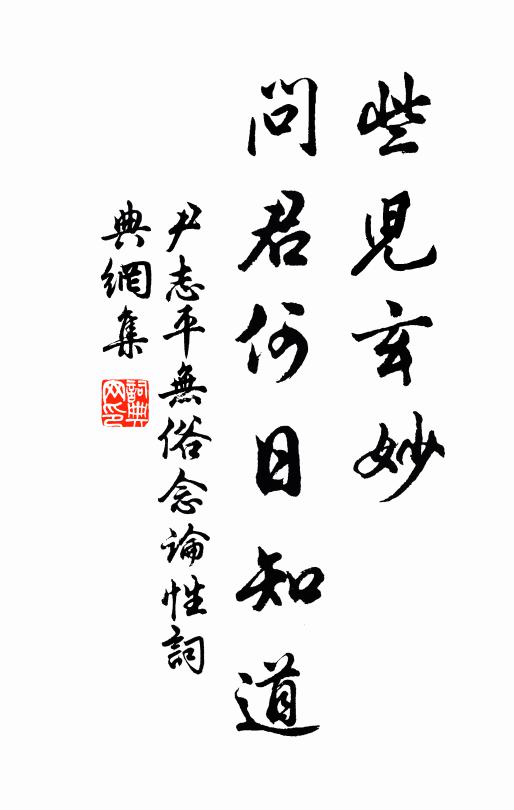 些児玄妙
問君何日知道
尹志平無俗念論性詞
典網集
詞典
网印